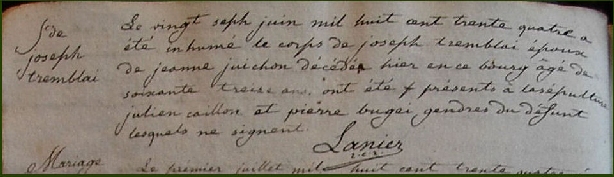 Sre de
joseph
tremblai
Le vingt seph juin mil huit cent trente quatre a
été inhumé le corps de joseph tremblai epoux
de jeanne juichon décédé hier en ce bourg âgé de
soixante treize ans. ont été presents a la sepulture
julien caillon et pierre bugei, gendres du defunt
lesquels ne signent.
Lanier
Mariage
Le premier juillet mil huit cent trente quatre